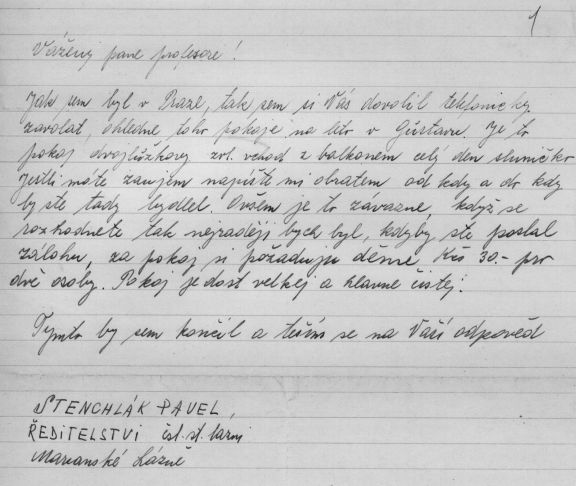 1
Vážený pane profesore!
Jak sem byl v Praze, tak sem si Vás dovolil telefonicky
zavolat, ohledně toho pokoje na léto v Gustavu. Je to
pokoj dvojlůžkový zvl. vchod z balkonem celý den sluníčko
jestli máte zaujem napište mi obratem od kdy a do kdy
by ste tady bydlel. Ovšem je to zavazné když se
rozhodnete tak nejraději bych byl, kdyby ste poslal
zálohu, za pokoj si požaduju děnně Kčs 30.- pro
dvě osoby. Pokoj je dost velkej a hlavně čistej.
Tymto by sem končil a těším se na Vaší odpověd
STENCHLÁK PAVEL,
ŘEDITELSTVI čsl. st. lazní
Marianské Lázně